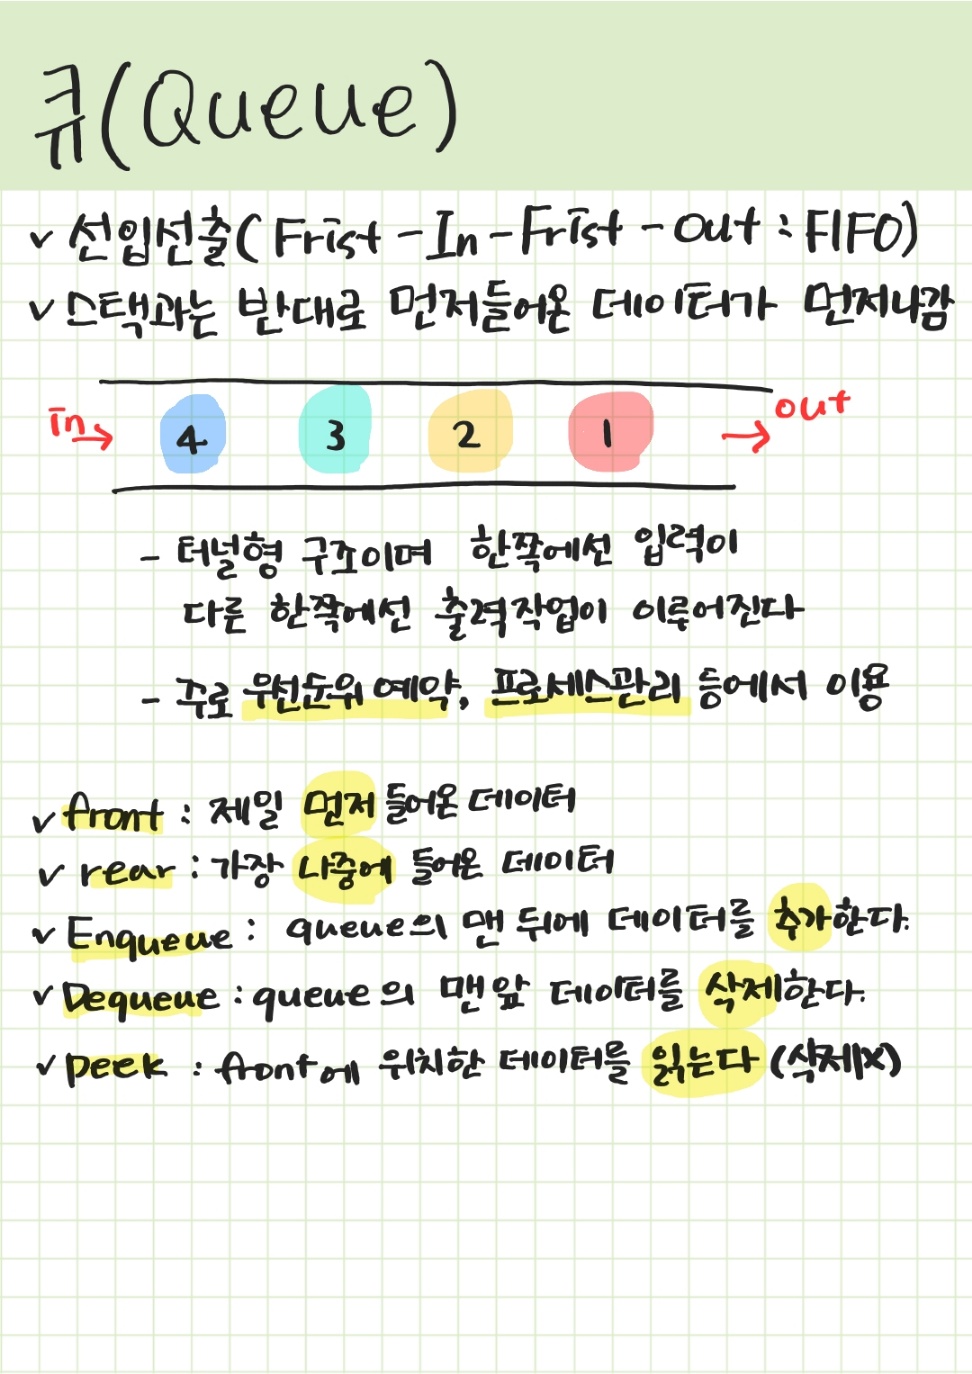 큐(Queue)
✓ 선입선출(Frist-In-Frist-Out : FIFO)
✓ 스택과는 반대로 먼저들어온 데이터가 먼저나감
in→ 4 3 2 1 → out
- 터널형 구조이며 한쪽에선 입력이
다른 한쪽에선 출력작업이 이루어진다
- 주로 우선순위 예약, 프로세스관리 등에서 이용
✓ front : 제일 먼저 들어온 데이터
✓ rear : 가장 나중에 들어온 데이터
✓ Enqueue : queue의 맨 뒤에 데이터를 추가한다.
✓ Dequeue : queue의 맨 앞 데이터를 삭제한다.
✓ peek : front에 위치한 데이터를 읽는다 (삭제x)